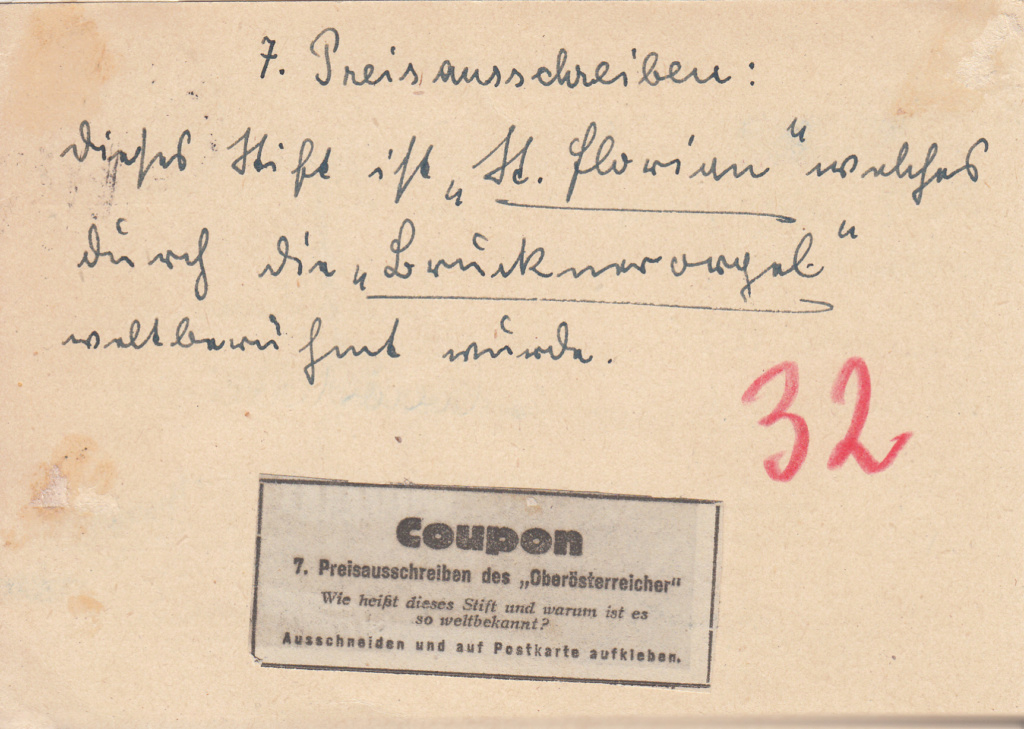 7. Preisausschreiben:
dieses Stift ist „St. Florian“ welches
durch die „Brucknerorgel“
weltberühmt wurde.
32
Coupon
7. Preisausschreiben des „Oberösterreicher“
Wie heißt dieses Stift und warum ist es
so weltbekannt?
Ausschneiden und auf Postkarte aufkleben.